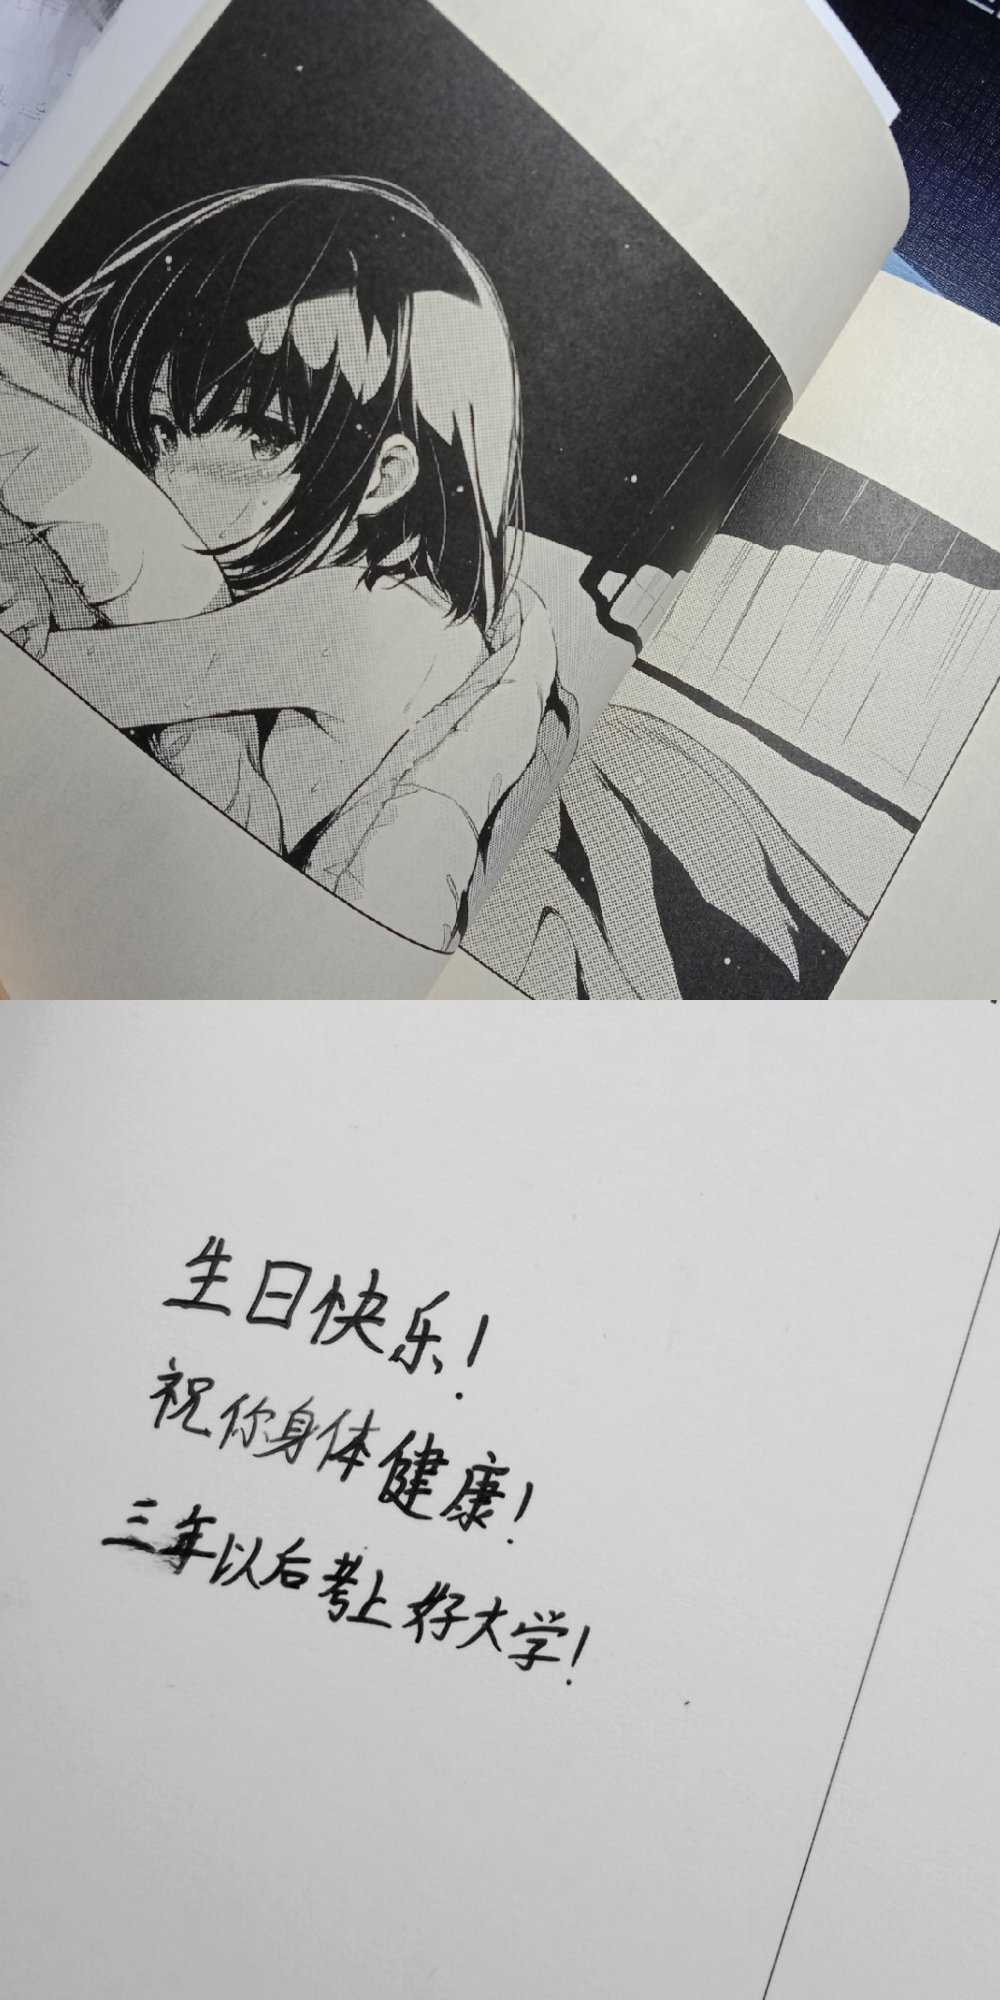 生日快乐！
祝你身体健康！
三年以后考上好大学！